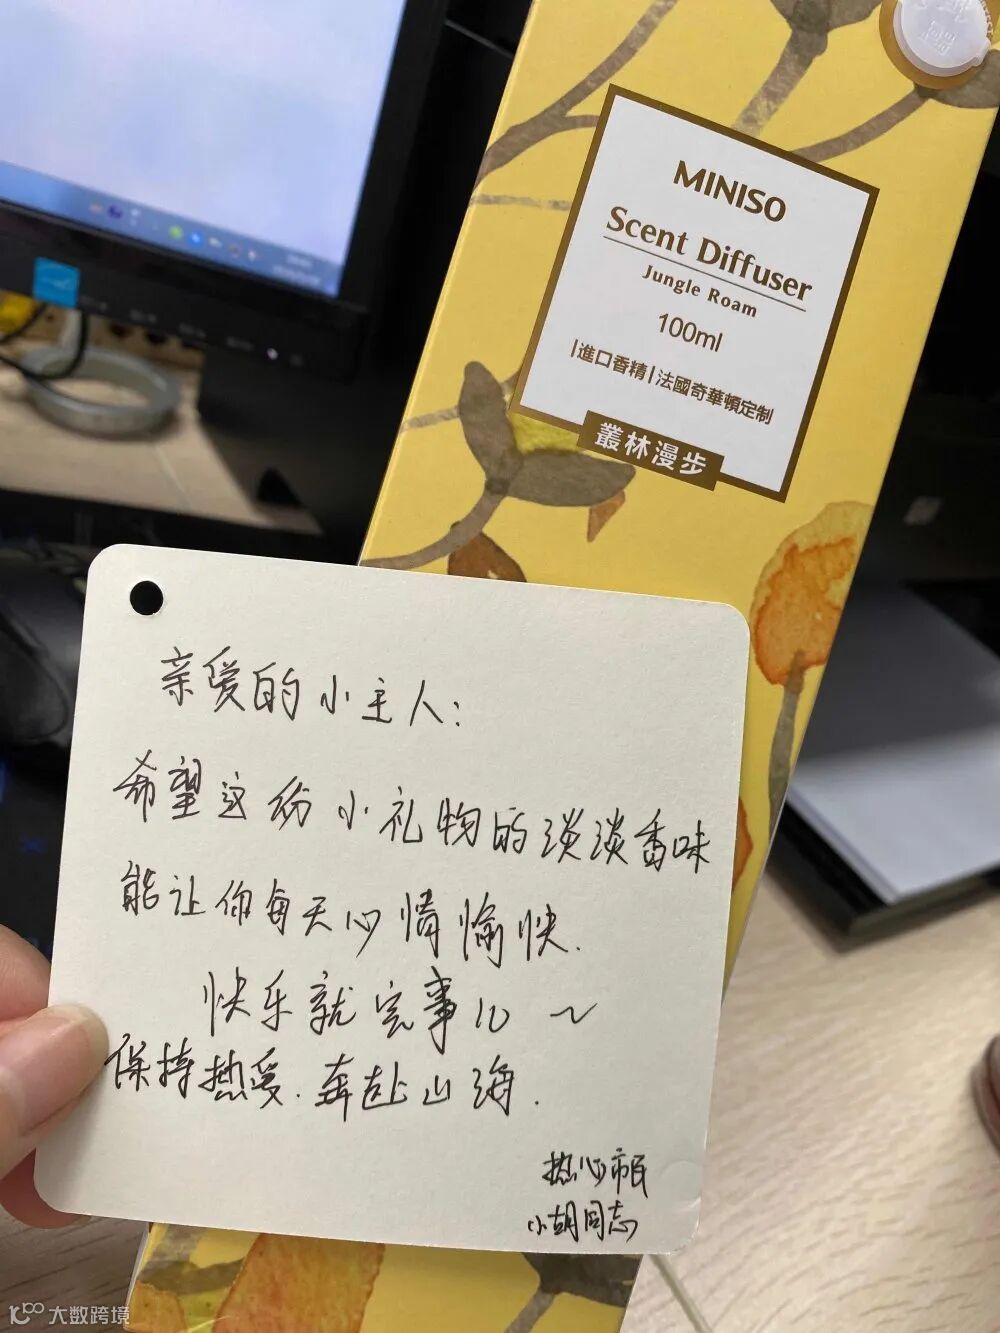 MINISO
Scent Diffuser
Jungle Roam
100ml
|進口香精|法國奇華頓定制
叢林漫步
亲爱的小主人:
希望这份小礼物的淡淡香味
能让你每天心情愉快.
快乐就完事儿~
保持热爱.奔赴山海.
热心市民
小胡同志
大数跨境